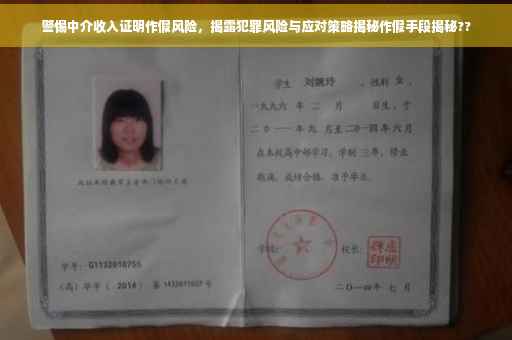 警惕中介收入证明作假风险，揭露犯罪风险与应对策略揭秘作假手段揭秘??
学生 刘婉玲 ，性别 女 ，
一九九六 年 二 月 日生，于
二0一一年九 月至二0一四年六月
在本校高中部学习，学制 三年，修业
期满，成绩合格，准予毕业。
学校： 校长：
学号： G1132010755
（高）毕字（ 2014 ）第 1432011027 号
二〇一四年 七 月